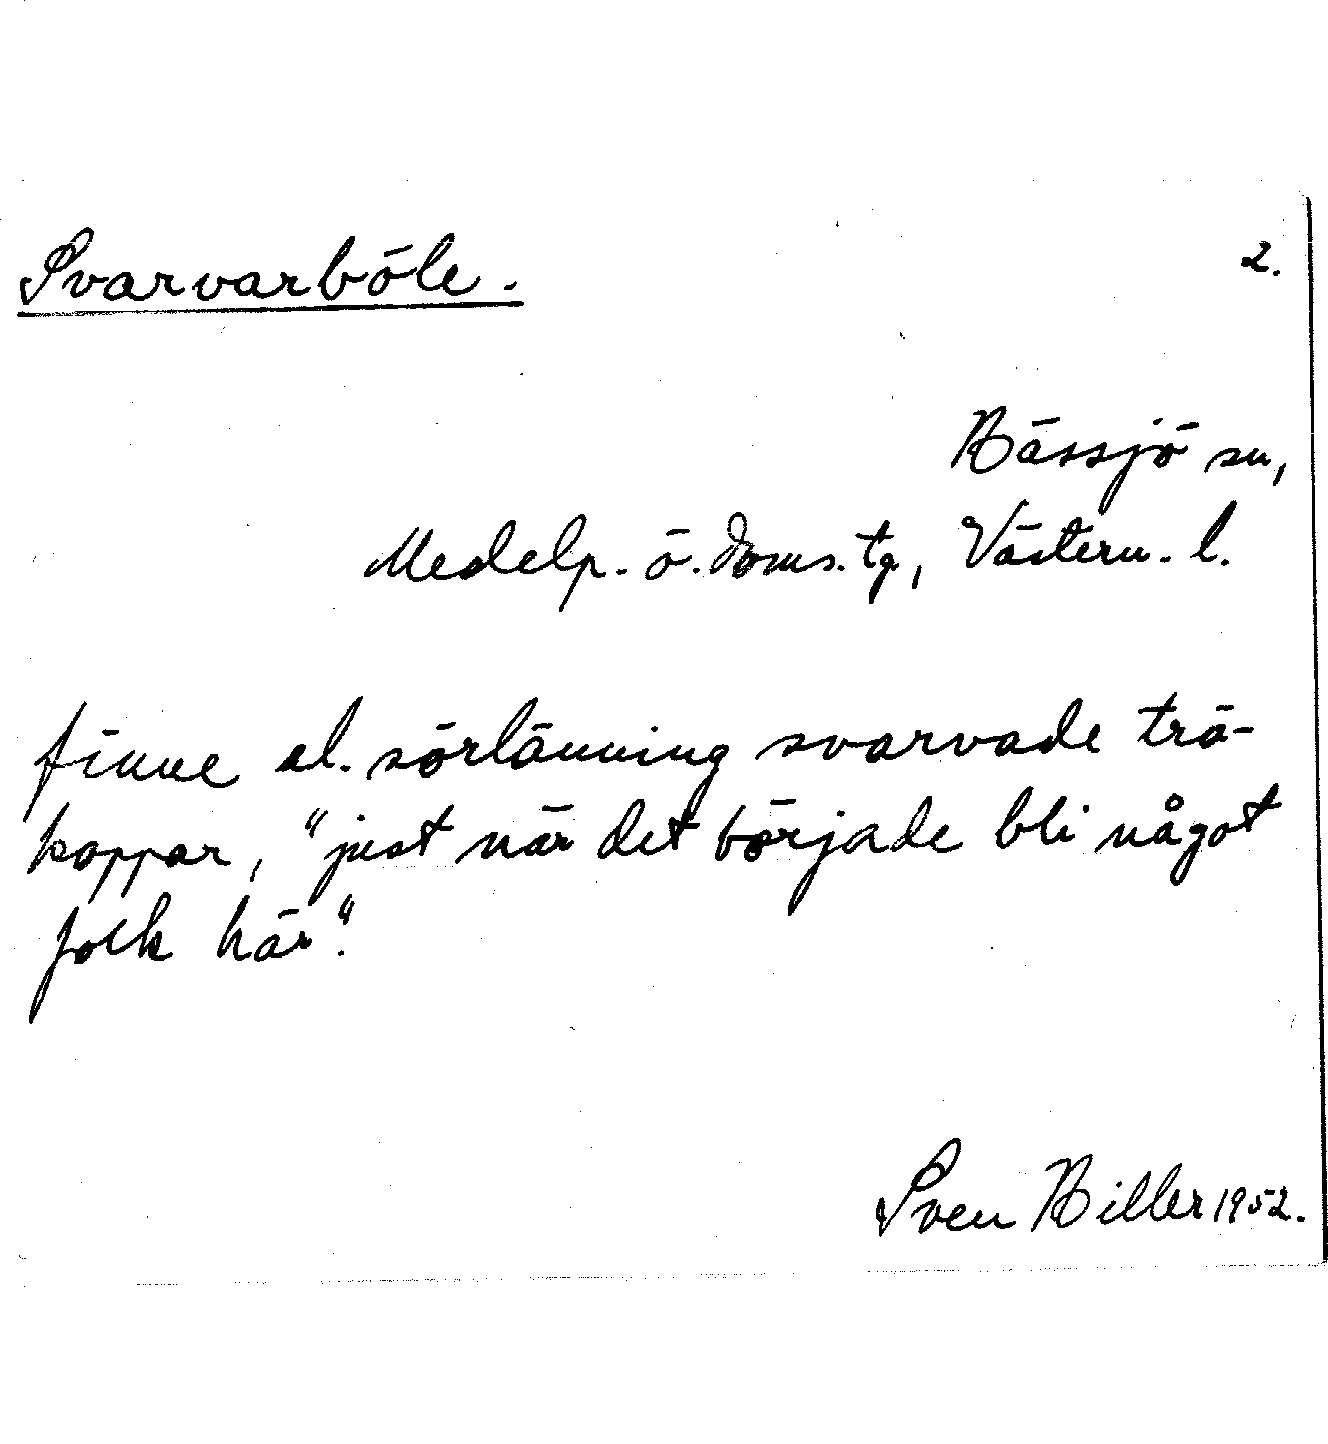 Svarvarböle. 2.
Bässjö sn,
Medelp. ö. doms. tg, Västern. l.
finne el. sörlänning svarvade trä-
koppar, "just när det började bli något
folk här".
Sven Biller 1952.